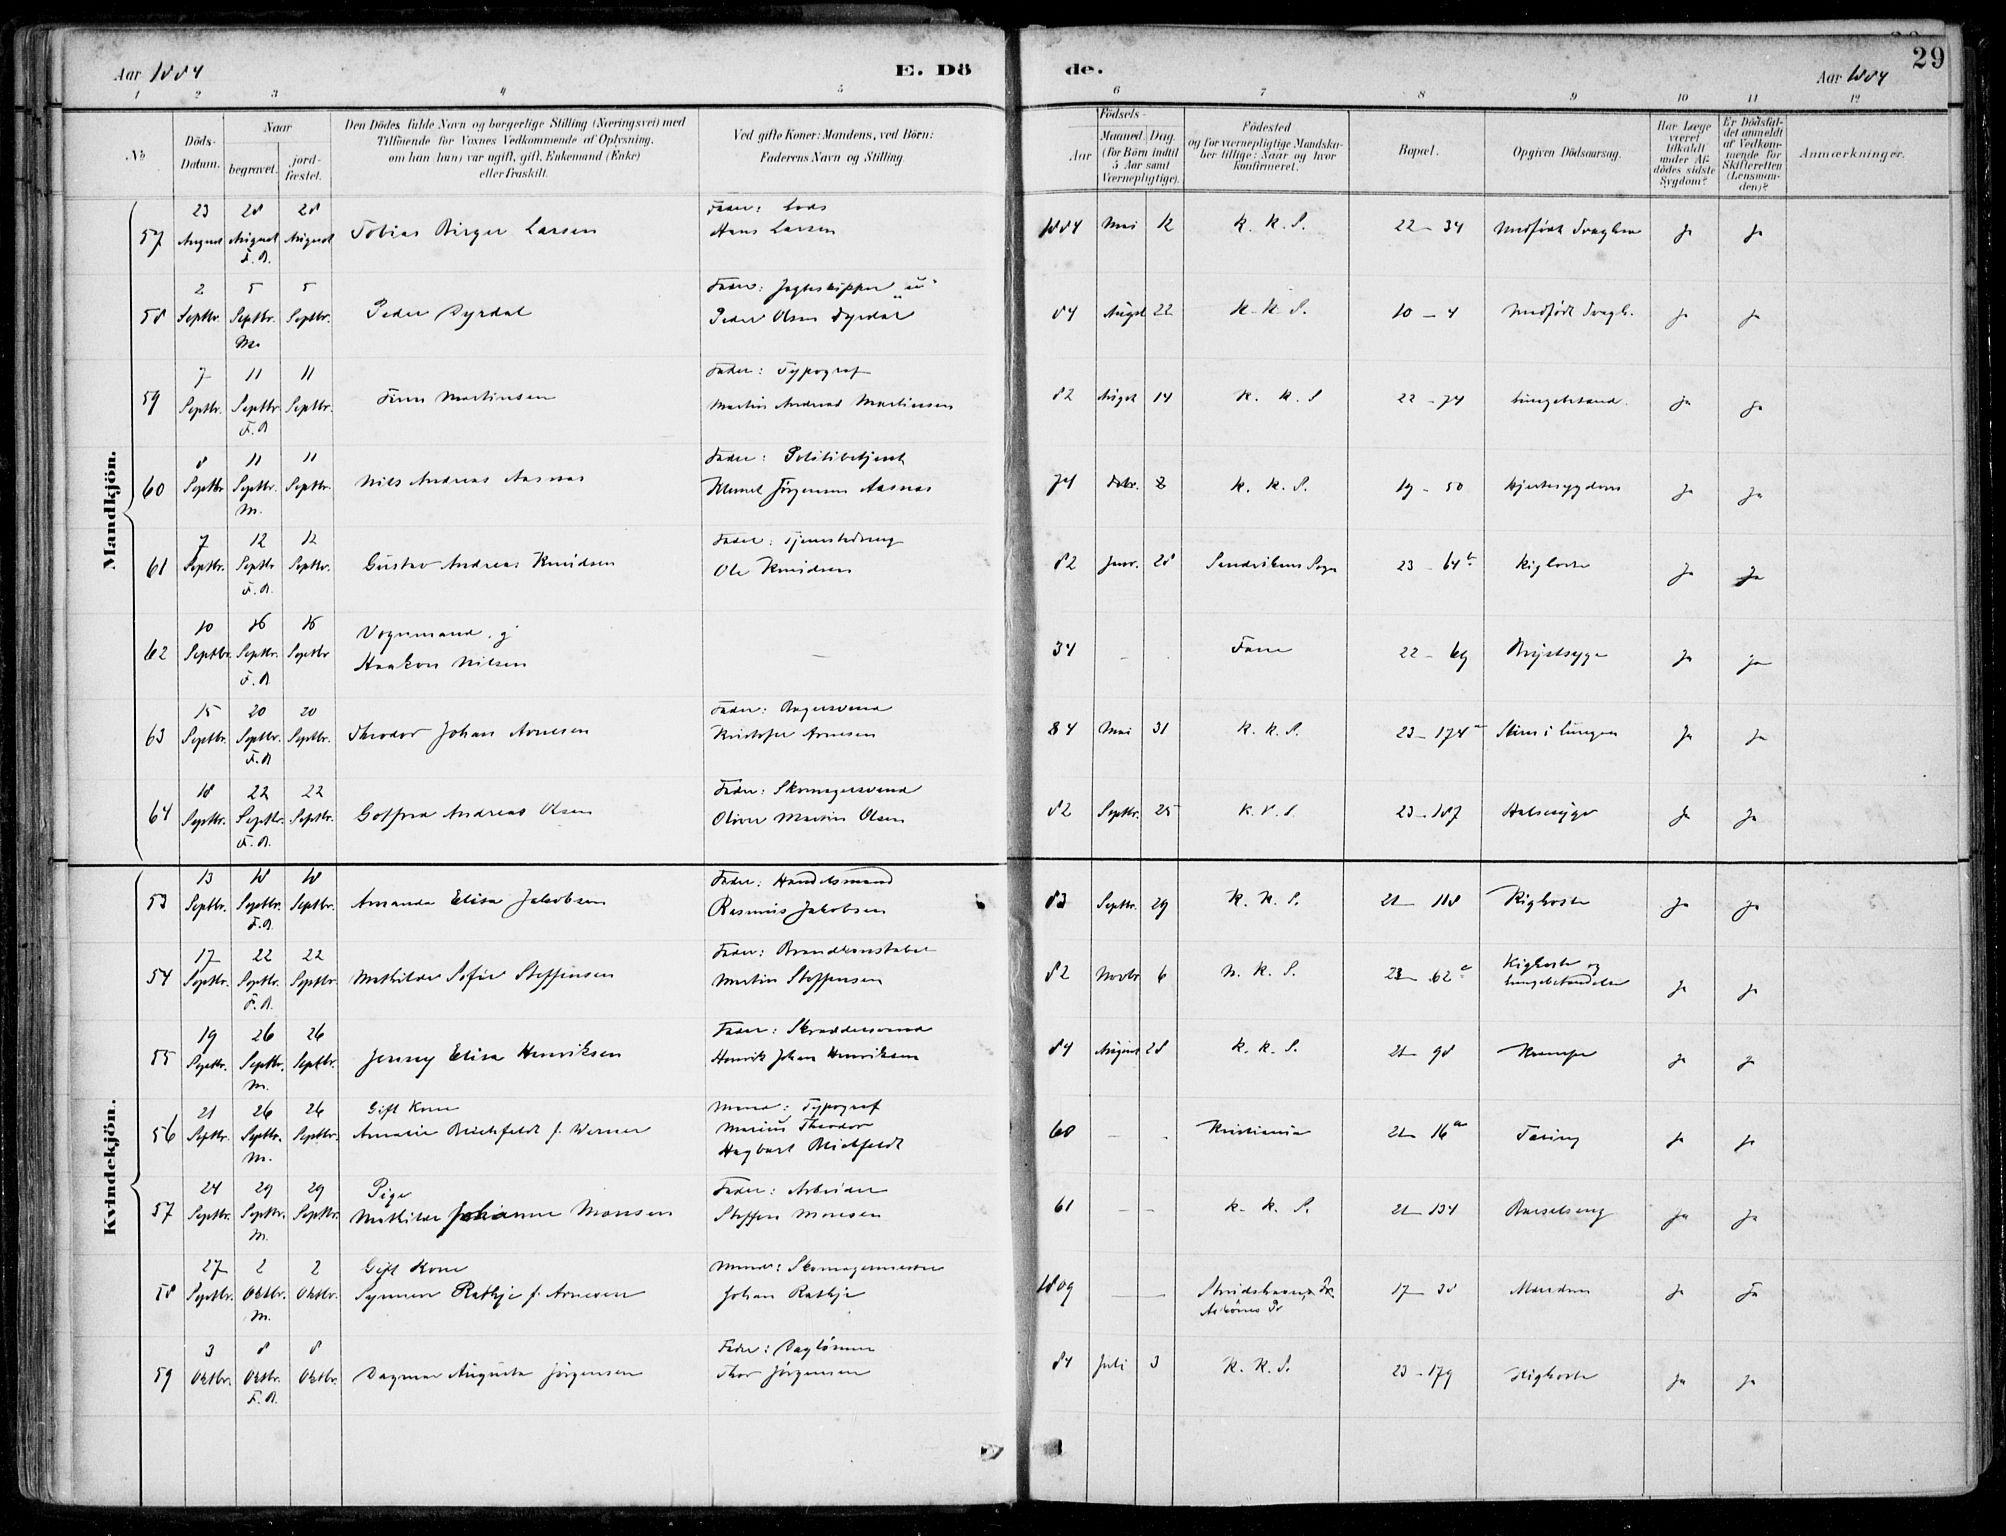 Aar 1884
E. Dö
de.
Aar 1884
29
1 2 3 4 5 6 7 8 9 10 11 12
No
Döds-Datum.
Naar
begravet.
jord-fæstet.
Den Dödes fulde Navn og borgerlige Stilling (Næringsvei) med
Tilföiende for Voxnes Vedkommende af Oplysning,
om han (hun) var ugift, gift, Enkemand (Enke)
eller fraskilt.
Ved gifte Koner: Mandens, ved Börn:
Faderens Navn og Stilling.
Födsels-
Aar
Maaned Dag.
(for Börn indtil
5 Aar samt
Værnepligtige).
Födested
og for værnepligtige Mandska-
ber tillige: Naar og hvor
konfirmeret.
Bopæl.
Opgiven Dödsaarsag.
Har Læge
været
tilkaldt
under Af-
dödes sidste
Sygdom?
Er Dödsfal-
det anmeldt
af Vedkom-
mende for
Skifteretten
(Lensman-
den)?
Anmærkninger.
Mandkjön.
57 23 August 28 August F.A. 28 August Tobias Birger Larsen Fader: Lods Hans Larsen 1884 Mai 12 K. K. S. 22 - 34 Medfødt Ja Ja
58 2 Septbr. 5 Septbr. 5 Septbr. Peder Dyrdal Fader: Jagteskipper Peder Olsen Dyrdal 84 August 22 K. K. S. 10 - 4 Medfødt Ja Ja
59 7 Septbr. 11 Septbr. F.A. 11 Septbr. Finn Martinsen Fader: Typograf Martin Andreas Martinsen 82 August 14 K. K. S 22 - 74 Ja Ja
60 8 Septbr 11 Septbr. M. 11 Septbr. Nils Andreas Aasnæs Fader: Politibetjent Jørgensen Aasnæs 74 K. K. S. 19 - 50 Hjertesygdom Ja Ja
61 7 Septbr. 12 Septbr F.A. 12 Septbr. Gustav Andreas Knudsen Fader: Ole Knudsen 82 Janr. 28 Sandvikens Sogn 23 - 64 Kighoste Ja Ja
62 10 Septbr. 16 Septbr. F.A 16 Septbr Vognmand. g. Haakon Nilsen 34 Fane 22 - 69 Brystsyge Ja Ja
63 15 Septbr. 20 Septbr. F.A 20 Septbr. Theodor Johan Arnesen Fader: Bagersvend Kristofer Arnesen 84 Mai 31 K. K. S. 23 - 174 Slim i Lungen Ja Ja
64 18 Septbr. 22 Septbr. F.A. 22 Septbr. Gotfred Andreas Olsen Fader: Skomagersvend Oliver Martin Olsen 82 Septbr. 25 K. K. S. 23 - 187 Halssyge Ja Ja
Kvindekjön.
53 13 Septbr. 18 Septbr. F.A. 18 Septbr. Amanda Elisa Jakobsen Fader: Handelsmand Rasmus Jakobsen 83 Septbr. 29 K. K. S. 21 - 118 Kighoste Ja Ja
54 17 Septbr. 22 Septbr. F.A. 22 Septbr. Mathilde Sofie Steffensen Fader: Brandkonstabel Martin Steffensen 82 Novbr 6 N. K. S. 23 - 62 Kighoste og Lungebetændelse Ja Ja
55 19 Septbr. 26 Septbr. M. 26 Septbr. Jenny Elisa Henriksen Fader: Skræddersvend Henrik Johan Henriksen 84 August 28 K. K. S. 21 - 98 Krampe Ja Ja
56 21 Septbr. 26 Septbr. M. 26 Septbr. Gift Kone Amalie Blichfeldt f. Werner Mand: Typograf Marius Theodor Hagbart Blichfeldt 60 Kristiania 21 - 16 Tæring Ja Ja
57 24 Septbr. 29 Septbr. M. 29 Septbr. Pige Mathilde Johanne Monsen Fader: Arbeider Steffen Monsen 61 K. K. S. 21 - 134 Barselseng Ja Ja
58 27 Septbr. 2 Oktbr. M. 2 Oktbr. Gift Kone Synneve Rathje f. Arnesen Mand: Skomagermester Johan Rathje 1809 Askøens Pr 17 - 38 Ja Ja
59 3 Oktbr. 8 Oktbr. F.A. 8 Oktbr. Dagmar Augusta Jørgensen Fader: Daglønner Thor Jørgensen 84 Juli 3 K. K. S. 23 - 179 Kighoste Ja Ja